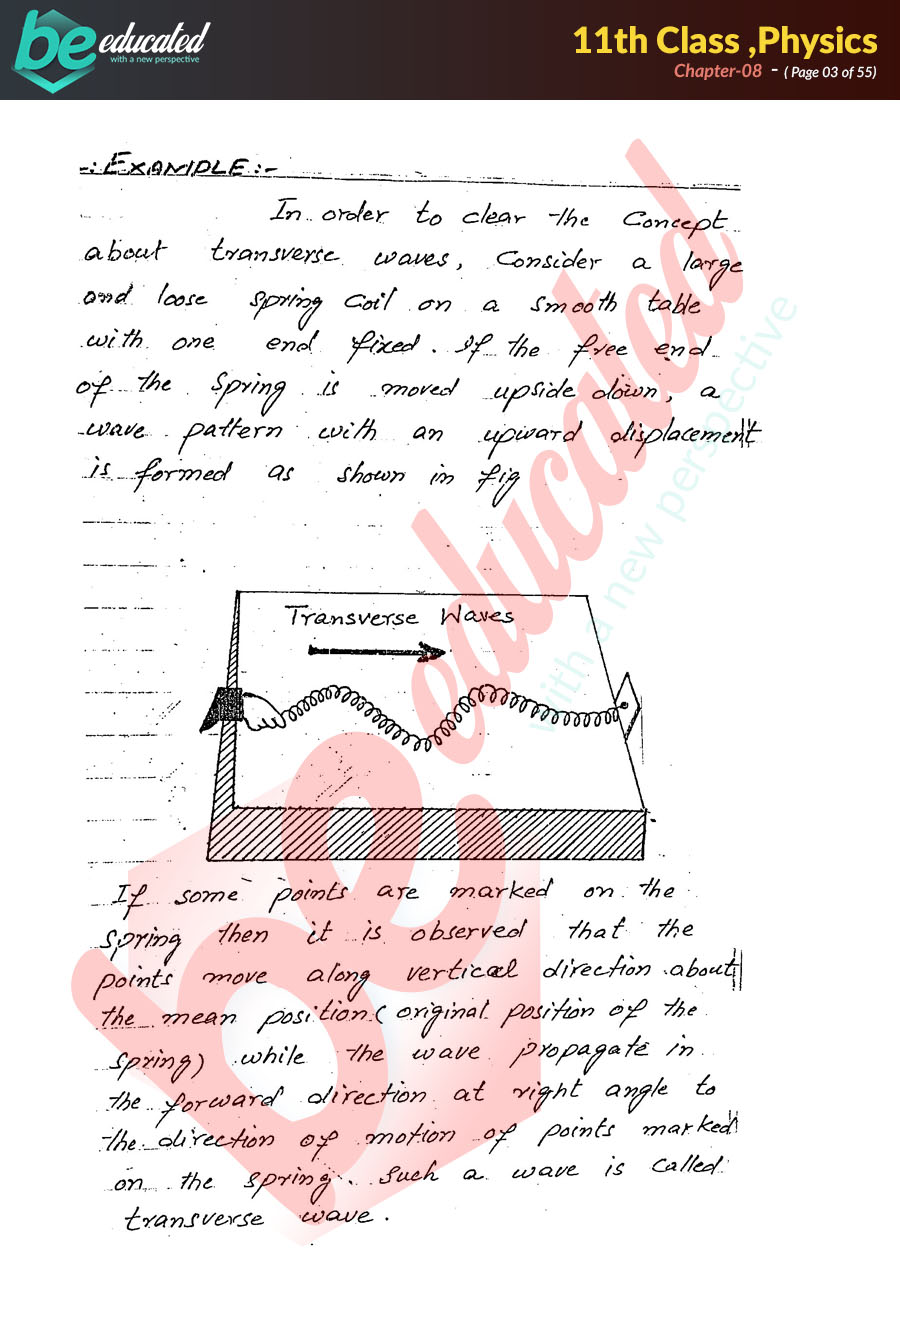 be educated
with a new perspective
11th Class ,Physics
Chapter-08 - ( Page 03 of 55)
-: EXAMPLE :-
In order to clear the Concept
about transverse waves, Consider a large
and loose Spring Coil on a smooth table
with one end fixed. If the free end
of the Spring is moved upside down, a
wave pattern with an upward displacement
is formed as shown in fig
Transverse Waves
If some points are marked on the
spring then it is observed that the
points move along vertical direction about
the mean position ( original position of the
spring) while the wave propagate in
the forward direction at right angle to
the direction of motion of points marked
on the spring. Such a wave is called
transverse wave.
be educated
with a new perspective